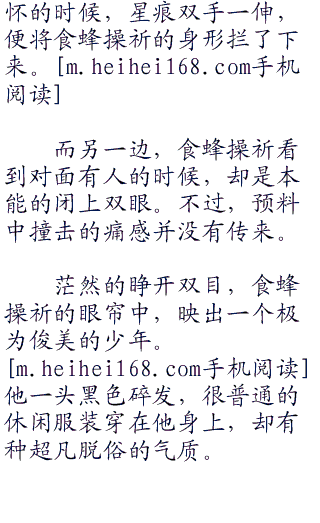 怀的时候，星痕双手一伸，
便将食蜂操祈的身形拦了下
来。[m.heihei168.com手机
阅读]
而另一边，食蜂操祈看
到对面有人的时候，却是本
能的闭上双眼。不过，预料
中撞击的痛感并没有传来。
茫然的睁开双目，食蜂
操祈的眼帘中，映出一个极
为俊美的少年。
[m.heihei168.com手机阅读]
他一头黑色碎发，很普通的
休闲服装穿在他身上，却有
种超凡脱俗的气质。